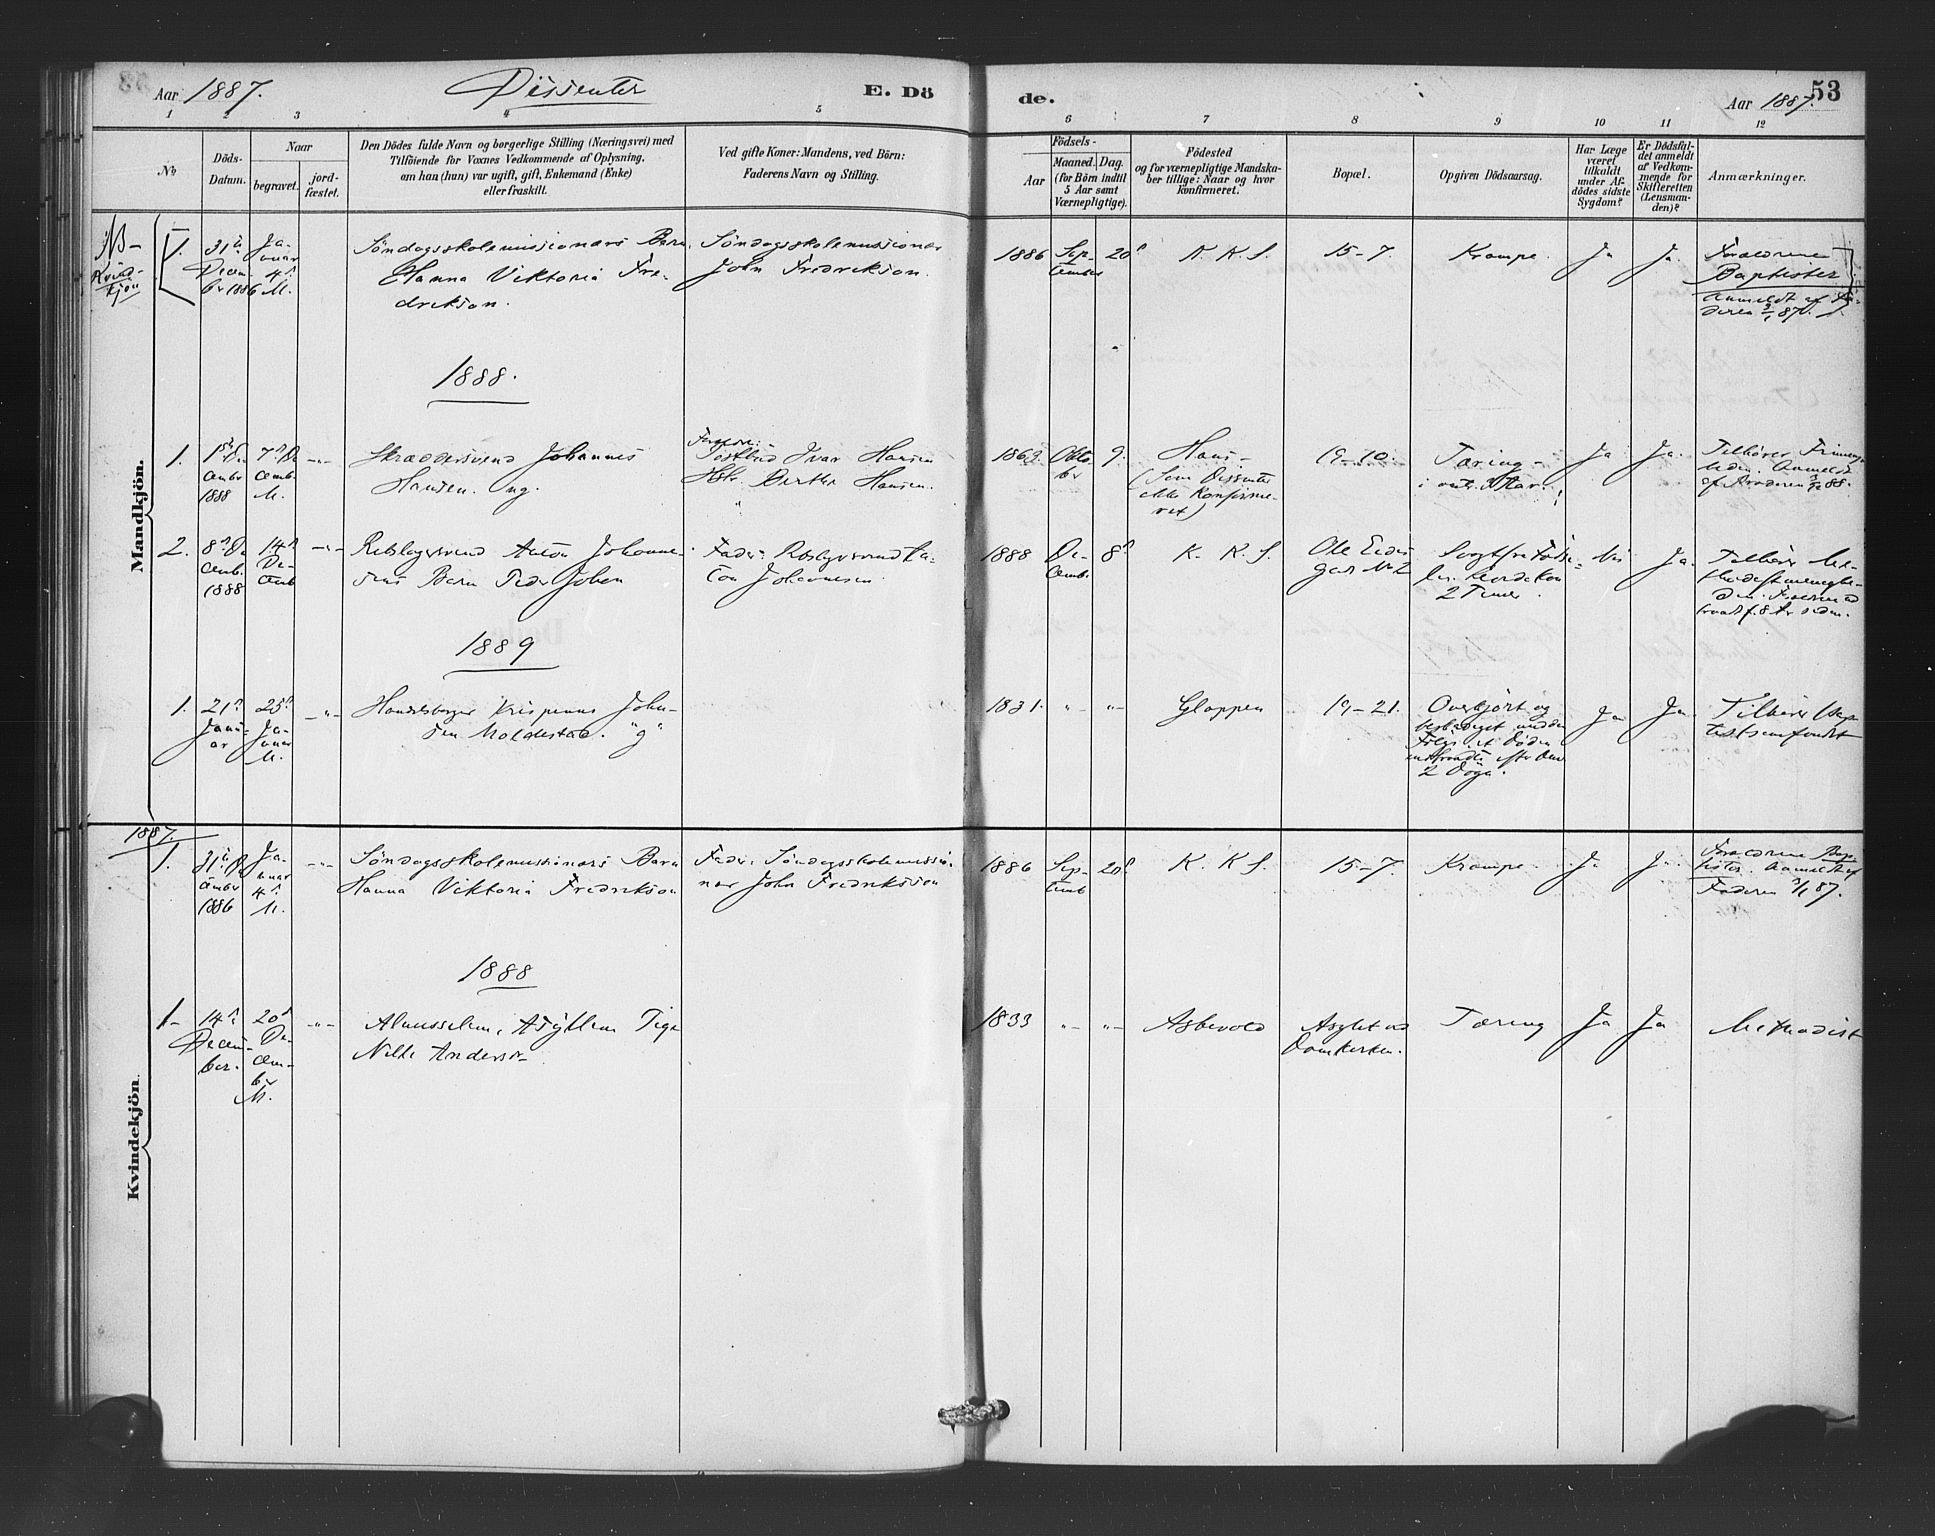 Aar 1887.
Dissenter
E. Dö
de.
Aar 1887.
53
1 2 3 4 5 6 7 8 9 10 11 12
No
Döds-
Datum.
Naar
begravet.
jord-
fæstet.
Den Dödes fulde Navn og borgerlige Stilling (Næringsvei) med
Tilföiende for Voxnes Vedkommende af Oplysning,
om han (hun) var ugift, gift, Enkemand (Enke)
eller fraskilt.
Ved gifte Koner: Mandens, ved Börn:
Faderens Navn og Stilling.
Födsels-
Aar
Maaned. Dag.
(for Börn indtil
5 Aar samt
Værnepligtige).
Födested
og for værnepligtige Mandska-
ber tillige: Naar og hvor
konfirmeret.
Bopæl.
Opgiven Dödsaarsag.
Har Læge
været
tilkaldt
under Af-
dödes sidste
Sygdom?
Er Dödsfal-
det anmeldt
af Vedkom-
mende for
Skifteretten
(Lensman-
den)?
Anmærkninger.
Mandkjön.
NB-
Kvind-
kjön
1.
31te
Decem-
br 1886
Ja-
nuar
4de
M.
Söndagsskolemissionærs Barn
Hanna Viktoria Fre-
drikson.
Söndagsskolemissionær
John Fredrikson.
1886
Sep-
tember
20de
K. K. S.
15-7.
Krampe.
Ja
Ja.
Forældrene
Baptister
Anmeldt af Fa-
deren 3/1 87.
1888.
1.
1ste De
cembr
1888
7de De
cemb.
M.
-"-
Skræddersvend Johannes
Hansen. ug.
Postbud Ivar Hansen
Hstr. Berthe Hansen.
1863.
Okto
br
9.
Haus-
(Som Dissenter
ikke Konfirme-
ret)
19-10.
Tæring-
Ja
Ja.
Tilhører Frimenig-
heden. Anmeldt
af Broderen 3/12 88.
2.
8de De
cemb.
1888
14de
De-
cemb
-"-
Rebslagersvend Anton Johanne-
sens Barn Peder Johan
Fader: Rebslagersvend An-
ton Johannesen.
1888
De-
cemb.
8de
K. K. S.
Ole Eides
gad No 2
2 Timer.
Nei
Ja.
Tilhører Me-
thodistmenighe-
den.
1889
1.
21de
Janu-
ar
25de
Ja-
nuar
M.
-"-
Handelsborger Krispinus John-
sen Moldestad. "g"
1831.
-"-
-"-
Gloppen
19-21.
Overkjört og
beskadiget
Döden
indtraadte efter
2 Dögn.
Ja
Ja.
Tilhører Bap-
tistsamfundet
Kvindekjön.
1887.
1.
31te De
cember
1886
Ja-
nuar
4de
M.
-"-
Söndagsskolemissionærs Barn
Hanna Viktoria Fredrikson
Fader: Söndagsskolemissio-
nær John Fredriksson
1886
Sep-
temb
20de
K. K. S.
15-7.
Krampe.
Ja
Ja.
Forældrene Bap-
tister. Anmeldt af
Faderen 3/1 87.
1888
1-
14de
Decem-
ber.
20de
De-
cem-
br
M.
-"-
Nille Anders-
1833
-"-
-"-
Askevold
Asylet ved
Domkirken.
Tæring
Ja
Ja
Methodist